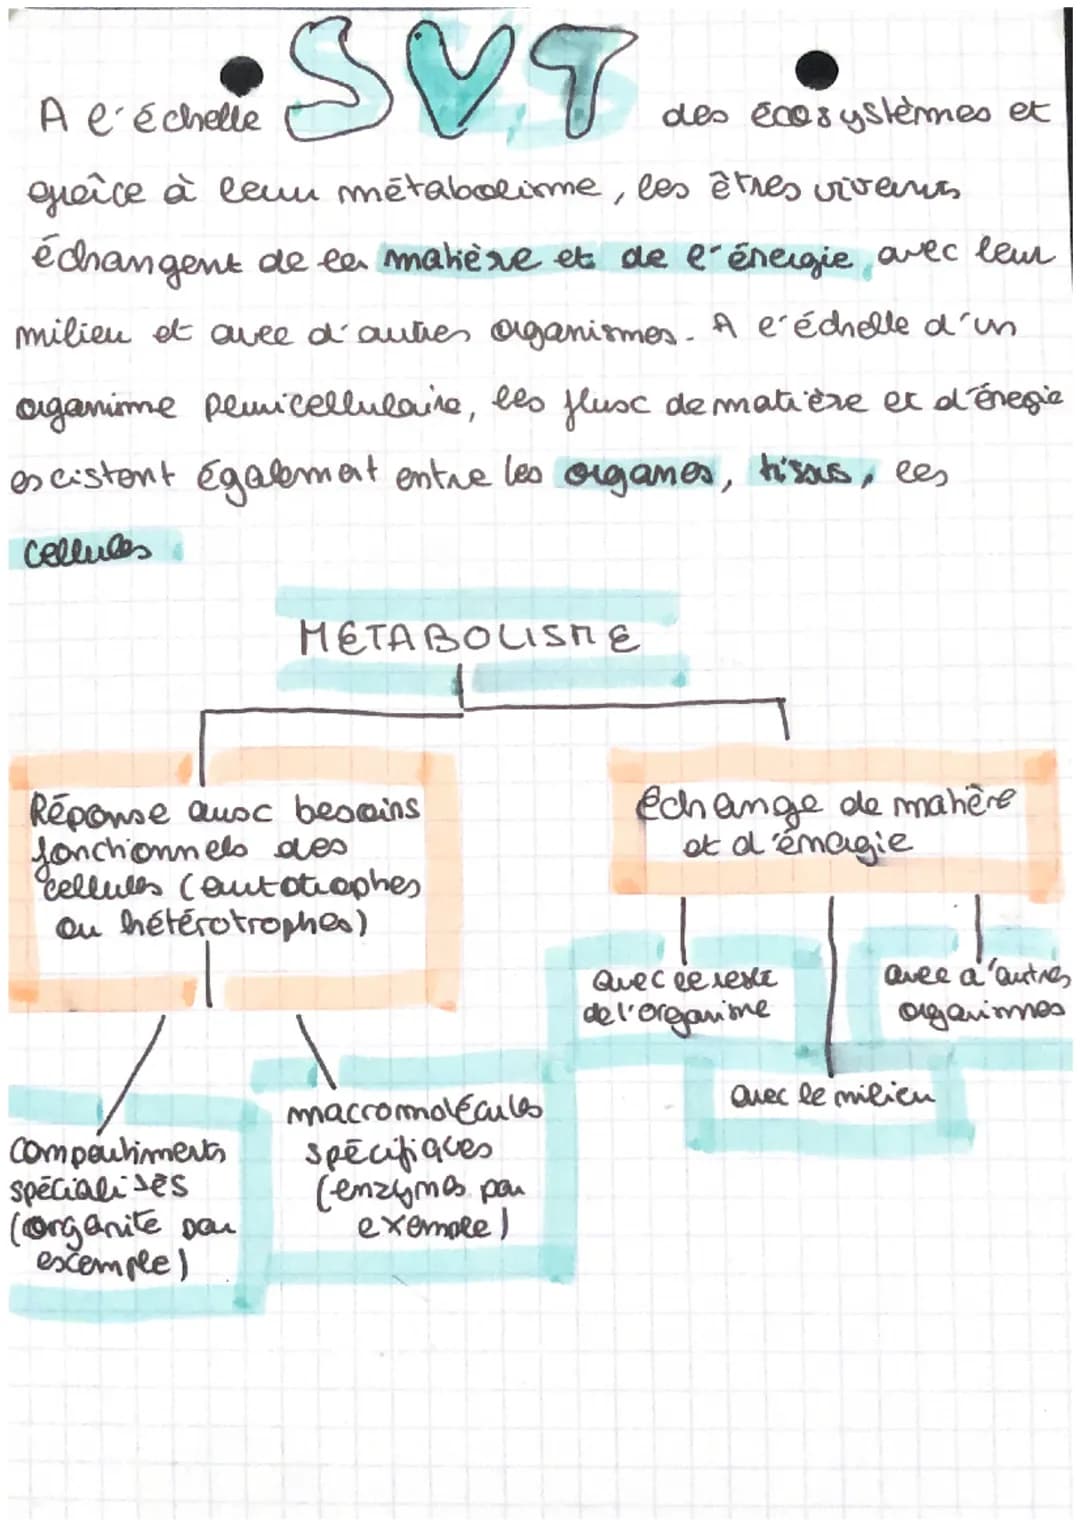 SVT
A l'échelle des écosystèmes et
grâce à leur métabolisme, les êtres vivants
échangent de la matière et de l'énergie avec leur
milieu et avec d'autres organismes. A l'échelle d'un
organisme pluricellulaire, les flux de matière et d'énegie
existent également entre les organes, tissus, les
cellules
MÉTABOLISME
Réponse aux besoins
fonctionnels des
cellules (autotrophes
ou hétérotrophes)
échange de matière
et d'énergie
avec le reste
de l'organisme
avec d'autres
organismes
avec le milieu
compartiments
spécialisés
(organite par
exemple)
macromolécules
spécifiques
(enzymes par
exemple)